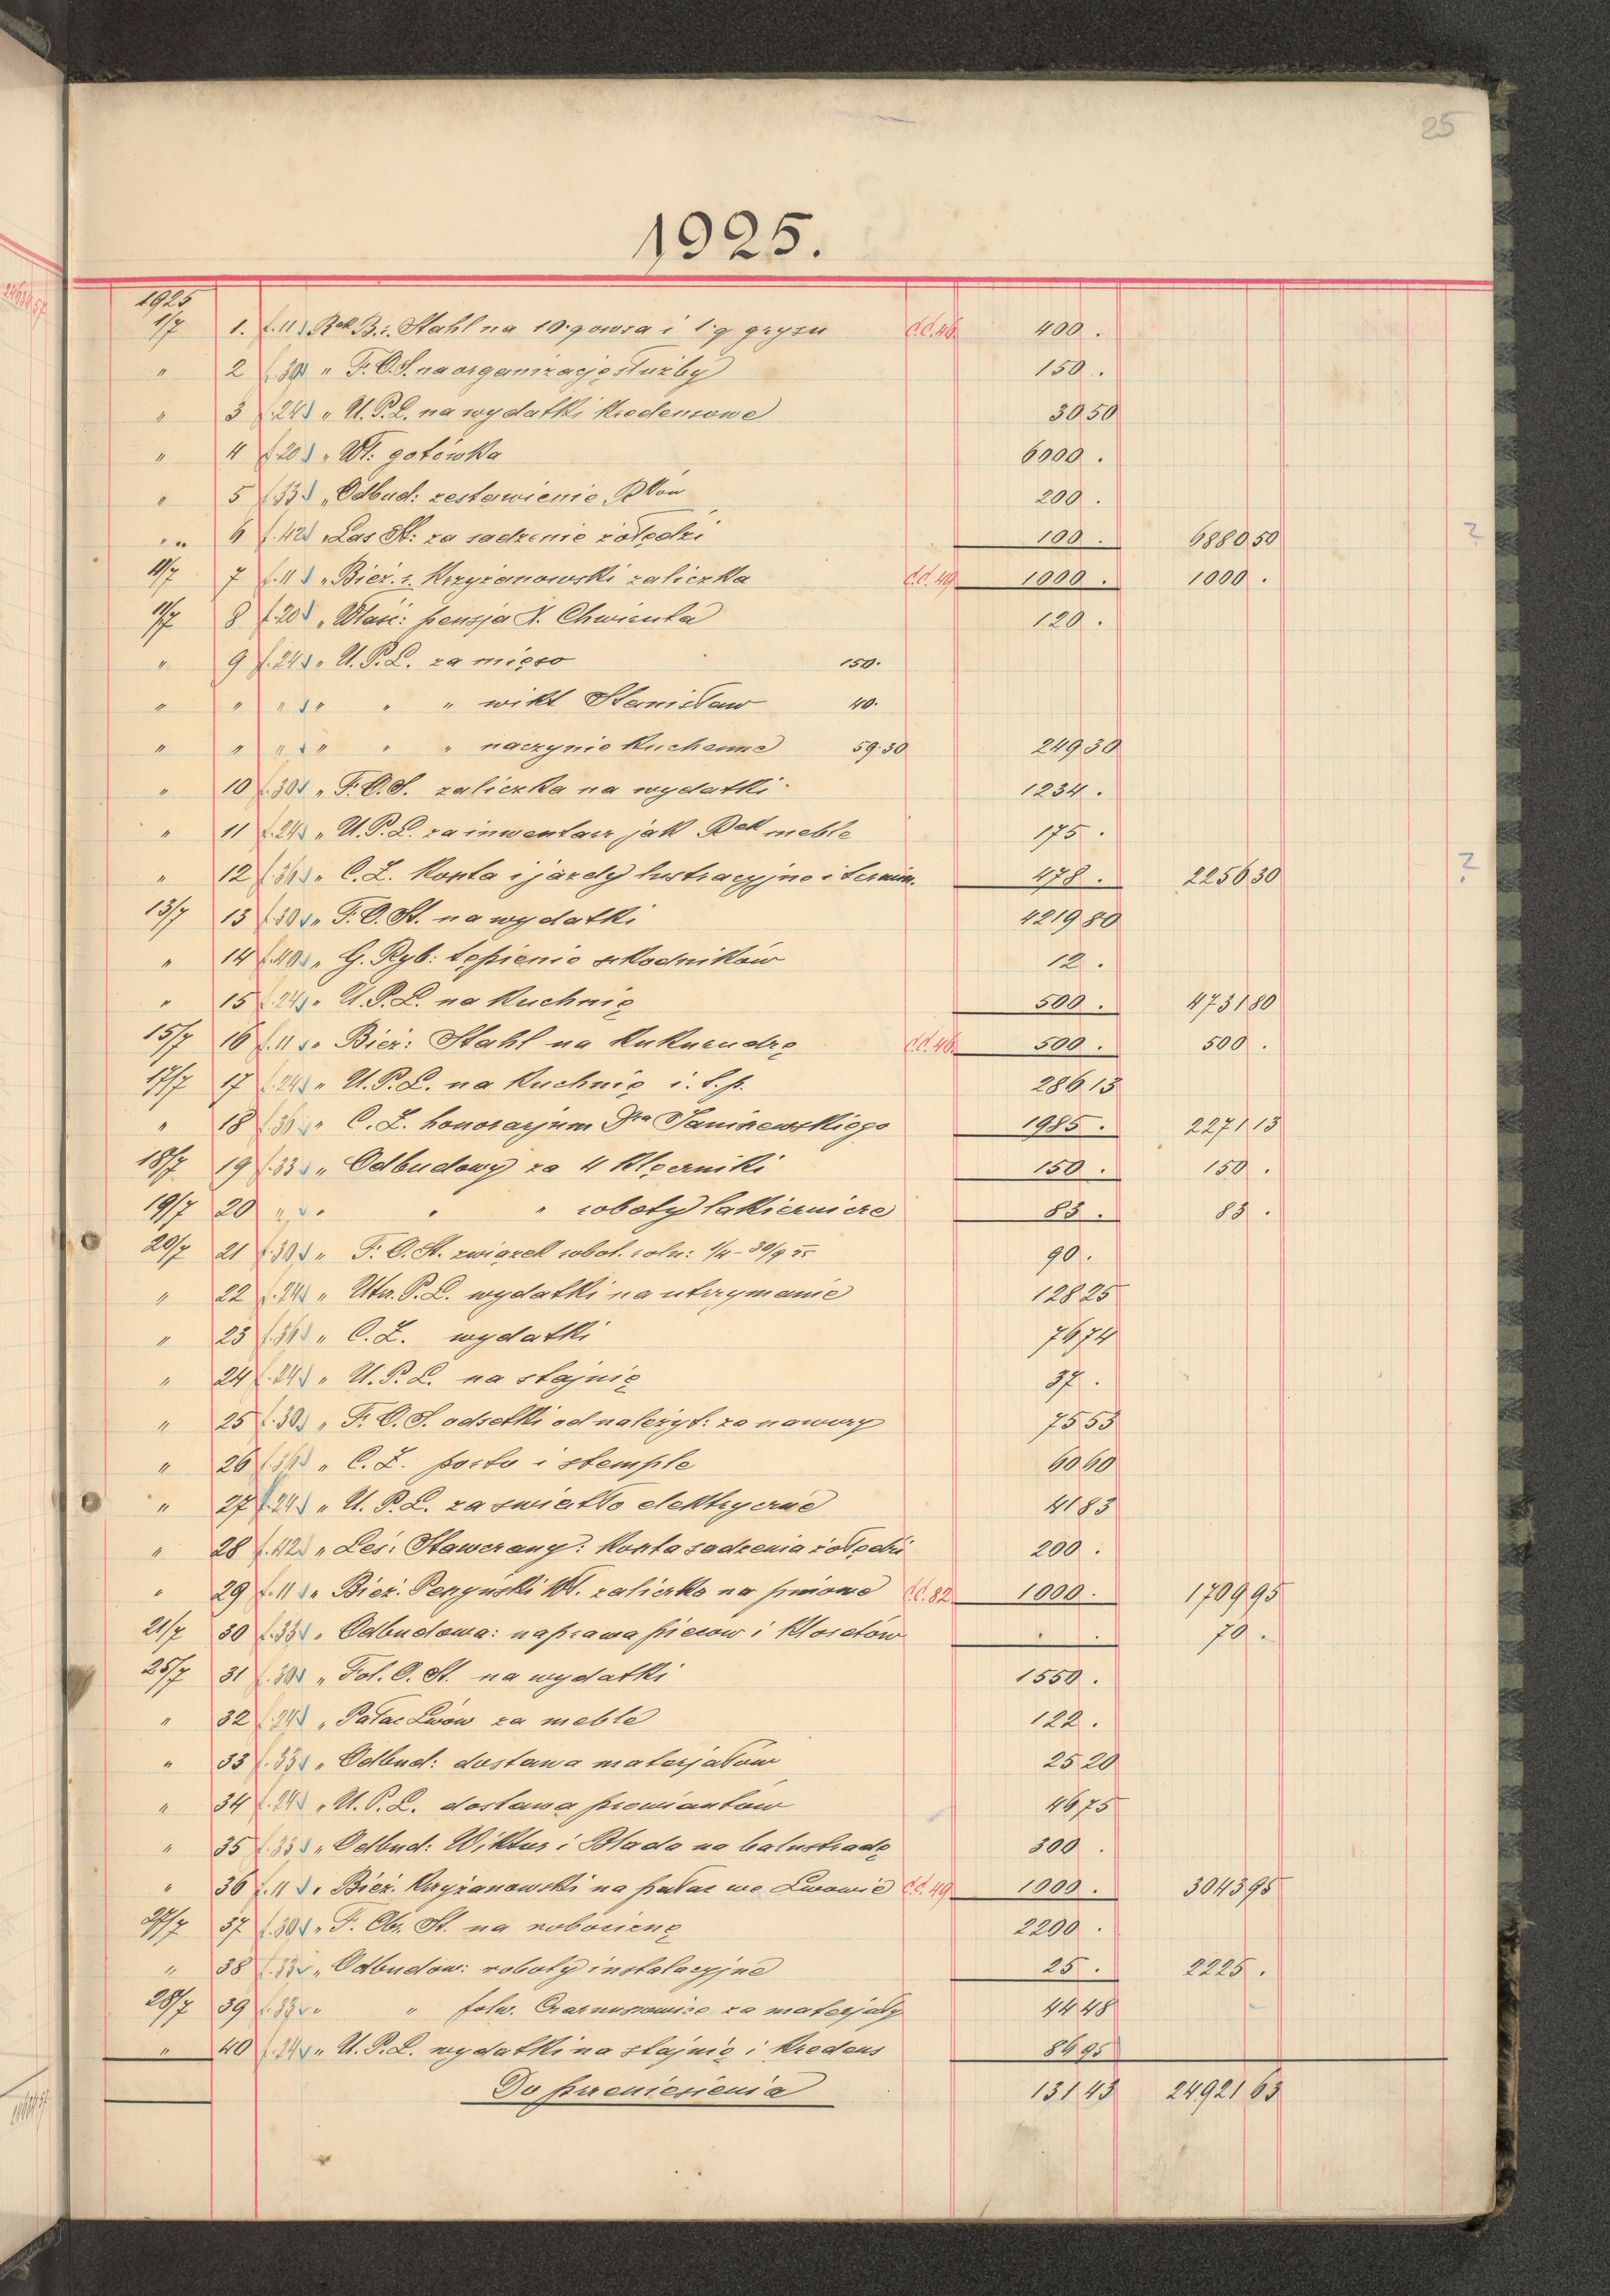 25
1925.
1925
1/7 1. f. 11 Rek B. r. Stahl na 10 q owsa i 1 q grysu d.d. 46. 400 .
" 2 f. 30 " F. O. S. na organizację służby 150 .
" 3 f. 24 " U. P. L. na wydatki kredensowe 30 50
" 4 f. 20 " Wł: gotówka 6000 .
" 5 f. 33 " Odbud: zestawienie 200 .
" 6 f. 42 " Las St: za sadzenie żołędzi 100 . 6880 50 ?
11/7 7 f. 11 " Bież. r. Krzyżanowski zaliczka d.d. 49 1000 . 1000 .
11/7 8 f. 20 " Właść: pensja N. Chwienta 120 .
" 9 f. 24 " U. P. L. za mięso 150.
" " " " " " wikt Stanisław 40.
" " " " " " naczynie kuchenne 59.30 249 30
" 10 f. 30 " F. O. S. zaliczka na wydatki 1234 .
" 11 f. 24 " U. P. L. za inwentarz jak Rek meble 175 .
" 12 f. 36 " C. Z. koszta i jazdy lustracyjne i termin. 478 . 2256 30 ?
13/7 13 f. 30 " F. O. St. na wydatki 4219 80
" 14 f. 40 " G. Ryb: tępienie szkodników 12 .
" 15 f. 24 " U. P. L. na kuchnię 500 . 4731 80
15/7 16 f. 11 " Bież: Stahl na kukurudzę d.d. 46. 500 . 500 .
17/7 17 f. 24 " U. P. L. na kuchnię i. t. p. 286 13
" 18 f. 36 " C. Z. honorarjum Dra Janiszewskiego 1985 . 2271 13
18/7 19 f. 33 " Odbudowy za 4 klęczniki 150 . 150 .
19/7 20 " " " " roboty lakiernicze 83 . 83 .
20/7 21 f. 30 " F. O. St. związek robot. roln: 1/4 - 30/9 25 90 .
" 22 f. 24 " Utrz. P. L. wydatki na utrzymanie 128 25
" 23 f. 36 " C. Z. wydatki 76 74
" 24 f. 24 " U. P. L. na stajnię 37 .
" 25 f. 30 " F. O. S. odsetki od należyt: za nawozy 75 53
" 26 f. 36 " C. Z. porto i stemple 60 60
" 27 f. 24 " U. P. L. za światło elektryczne 41 83
" 28 f. 42 " Leś: Stawczany: koszta sadzenia żołędzi 200 .
" 29 f. 11 " Bież. Peszyński Wł. zaliczka na d.d. 82 1000 . 1709 95
21/7 30 f. 33 " Odbudowa: naprawa pieców i klosetów . . 70 .
25/7 31 f. 30 " Fol. O. St. na wydatki 1550 .
" 32 f. 24 " Pałac Lwów za meble 122 .
" 33 f. 33 " Odbud: dostawa materjałów 25 20
" 34 f. 24 " U. P. L. dostawa prowiantów 46 75
" 35 f. 33 " Odbud: Wiktor i Blada na balustradę 300 .
" 36 f. 11 " Bież. Krzyżanowski na pałac we Lwowie d.d. 49 1000 . 3043 95
27/7 37 f. 30 " F. Ob. St. na robociznę 2200 .
" 38 f. 33 " Odbudow: roboty instalacyjne 25 . 2225 .
28/7 39 f. 33 " " folw. Czarnuszowice za materjały 44 48
" 40 f. 24 " U. P. L. wydatki na stajnię i kredens 86 95
Do przeniesienia 131 43 24921 63